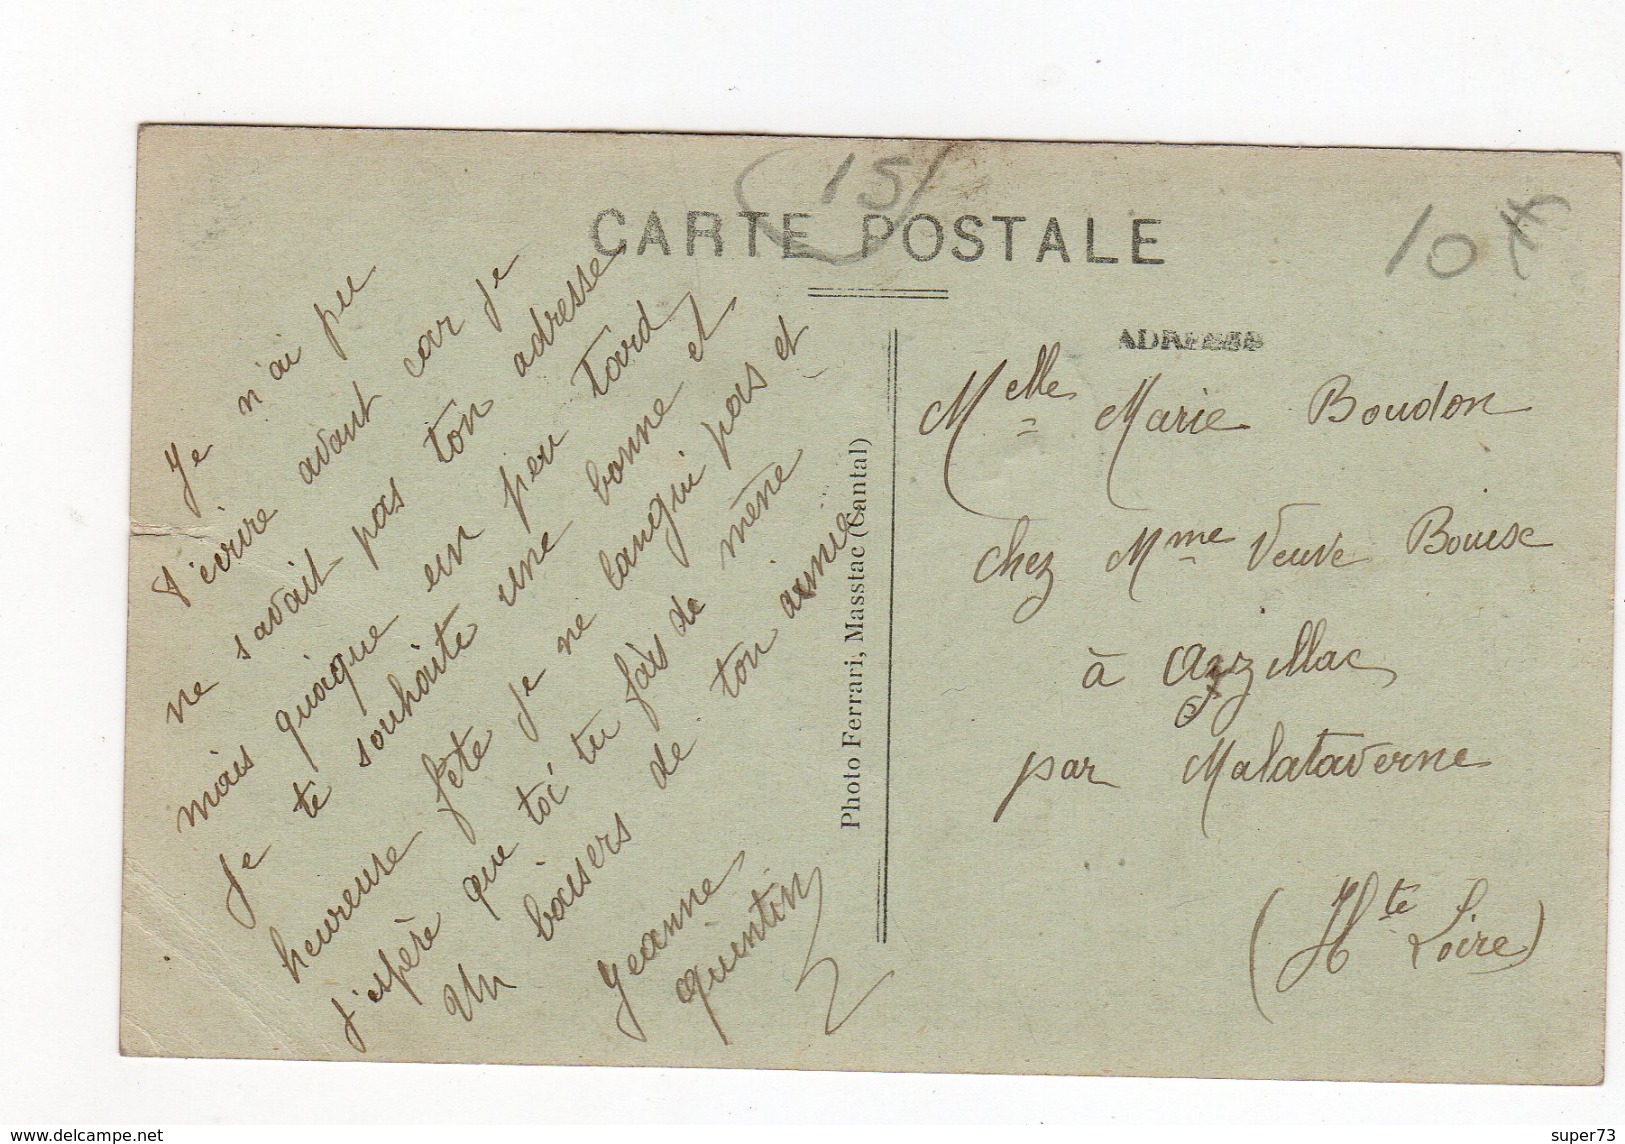 15
10 
CARTE POSTALE
ADRESSE
Je n'ai pu
t'ecrire avant car je
ne savait pas ton adresse
mais quoique un peu tard
je te souhaite une bonne et
heureuse fête je ne langui pas et
j'espère que toi tu fais de même
Un baisers de ton amie
Jeanne
Quintin
Photo Ferrari, Masstac (Cantal)
Melle Marie Boudon
chez Mme Veuve Bouisc
à Azzillac
par Malataverne
(Hte Loire)
www.delcampe.net
super73